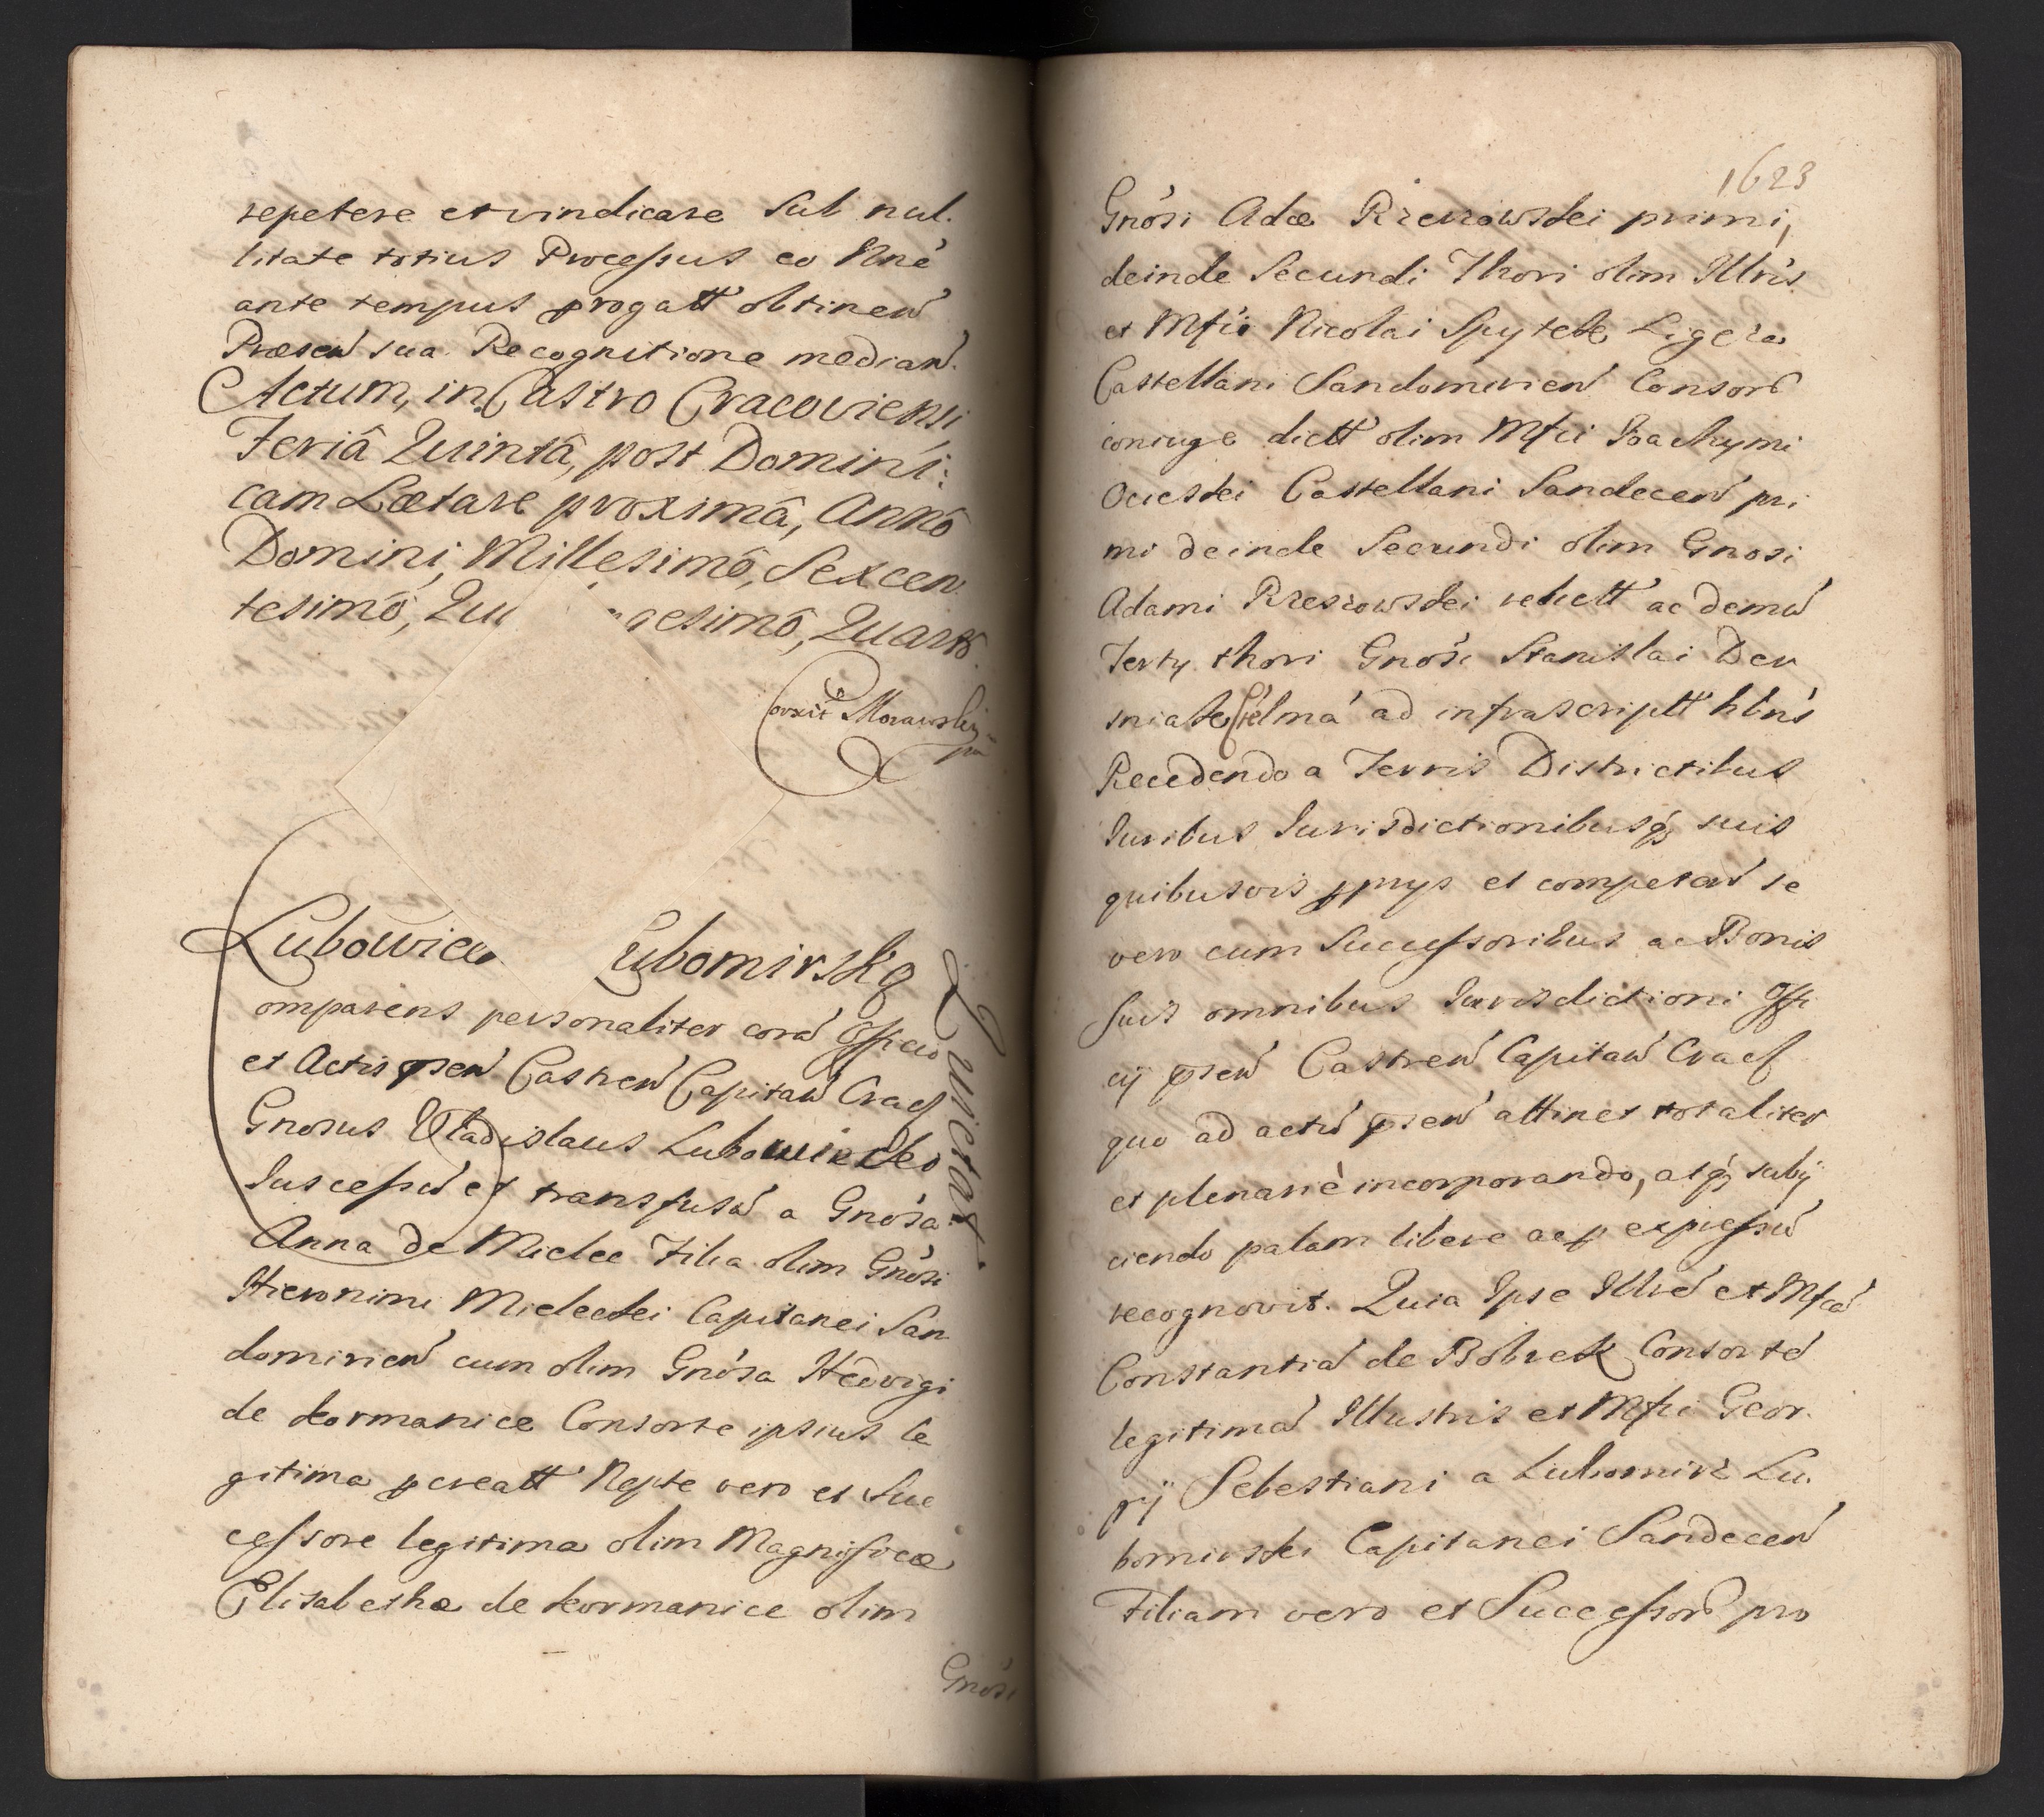 repetere et vindicare Sub nul-
litate totius Processus eo Nnē
ante tempus progatt obtinen
Præsen sua Recognitione median.
Actum, in Castro Cracoviensi
Feriâ Quintâ, post Domini:
cam Lætare proximâ, Annô
Domini, Millesimô, Sexcen
tesimô, Qu gesimô, Quartô.
Corxit Morawski
mp
Lubowiec Lubomirska
Quietat.
omparens personaliter corā Officio
et Actis psen Castren Capitan Crac
Gnosus Vladislaus Lubowiecki
Suscepsū et transfusā a Gnôsa
Anna de Mielec Filia olim Gnôsi
Hieronimi Mielecki Capitanei San
domirien cum olim Gnôsa Hedvigi
de Kormanice Consorte ipsius le
gitima pcreatt Nepte vero et Suc
cessore legitima olim Magnificæ
Elisabethæ de Kormanice olim
Gnôsi
1623
Gnôsi Adæ Rzeszowski primi,
deinde Secundi Thori olim Illris
et Mfci Nicolai Spytek Ligęza
Castellani Sandomirien Consor
coniuge dictt olim Mfci Joachymi
Ocieski Castellani Sandecen pri
mi deinde Secundi olim Gnosi
Adami Rzeszowski relictt ac demū
Terty thori Gnôsi Stanislai Der
sniak Cielmâ ad infrascriptt hbns
Recedendo a Terris Districtibus
Juribus Jurisdictionibusq suis
quibusvis pprys et competen se
vero cum Successoribus ac Bonis
Suis omnibus Jurisdictioni Offi
cij psen Castren Capitan Crac
quo ad actū psen attinet totaliter
et plenariè incorporando, atq subij
ciendo palam libere ac p expressū
recognovit. Quia Ipse Illrē et Mfcā
Constantiā de Bobrek Consortē
legitimā Illustris et Mfci Geor-
gij Sebestiani a Lubomirz Lu-
bomirski Capitanei Sandecen
Filiam vero et Successor pro